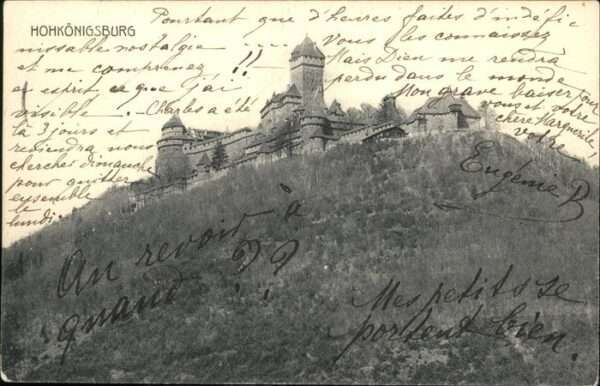 HOHKÖNIGSBURG
Pourtant que d'heures faites d'indéfi-
nissable nostalgie
vous les connaissez
et me comprenez !!
Mais Dieu me rendra
et esprit ce que j'ai
perdu dans le monde
visible. Charles a été
Mon grave baiser pour
là 3 jours et
vous et votre
reviendra nous
chère Marguerite,
chercher dimanche
votre
pour quitter
Eugénie B
ensemble
le
lundi.
Au revoir à
quand ??
Mes petits se
portent bien.